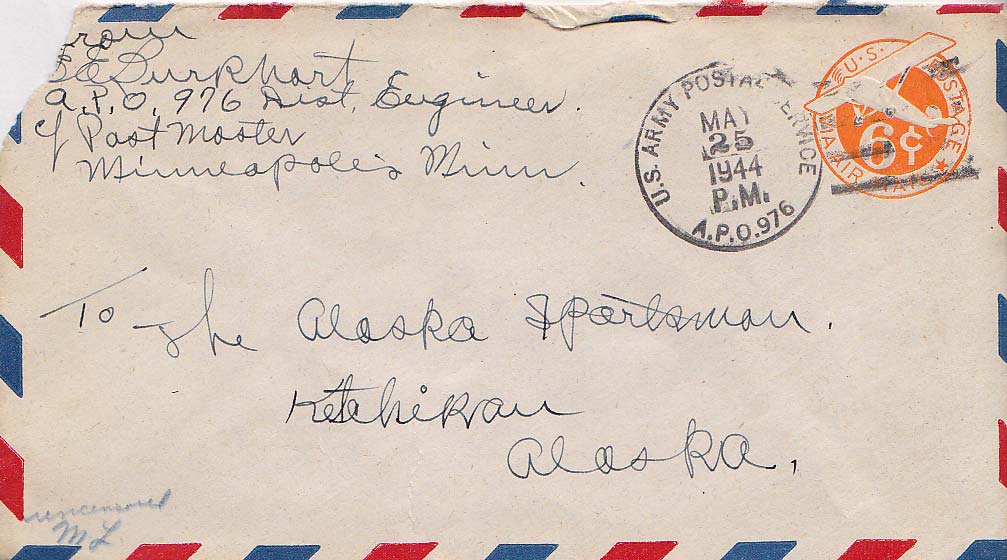 From
E E Burkhart
A.P.O. 976 Dist. Engineer.
c/ Post Master
Minneapolis Minn.
U.S. ARMY POSTAL SERVICE
MAY
25
1944
P.M.
A.P.O. 976
U.S. POSTAGE
6¢
VIA AIR MAIL
To The Alaska Sportsman.
Ketchikan
Alaska.
uncensored
M L